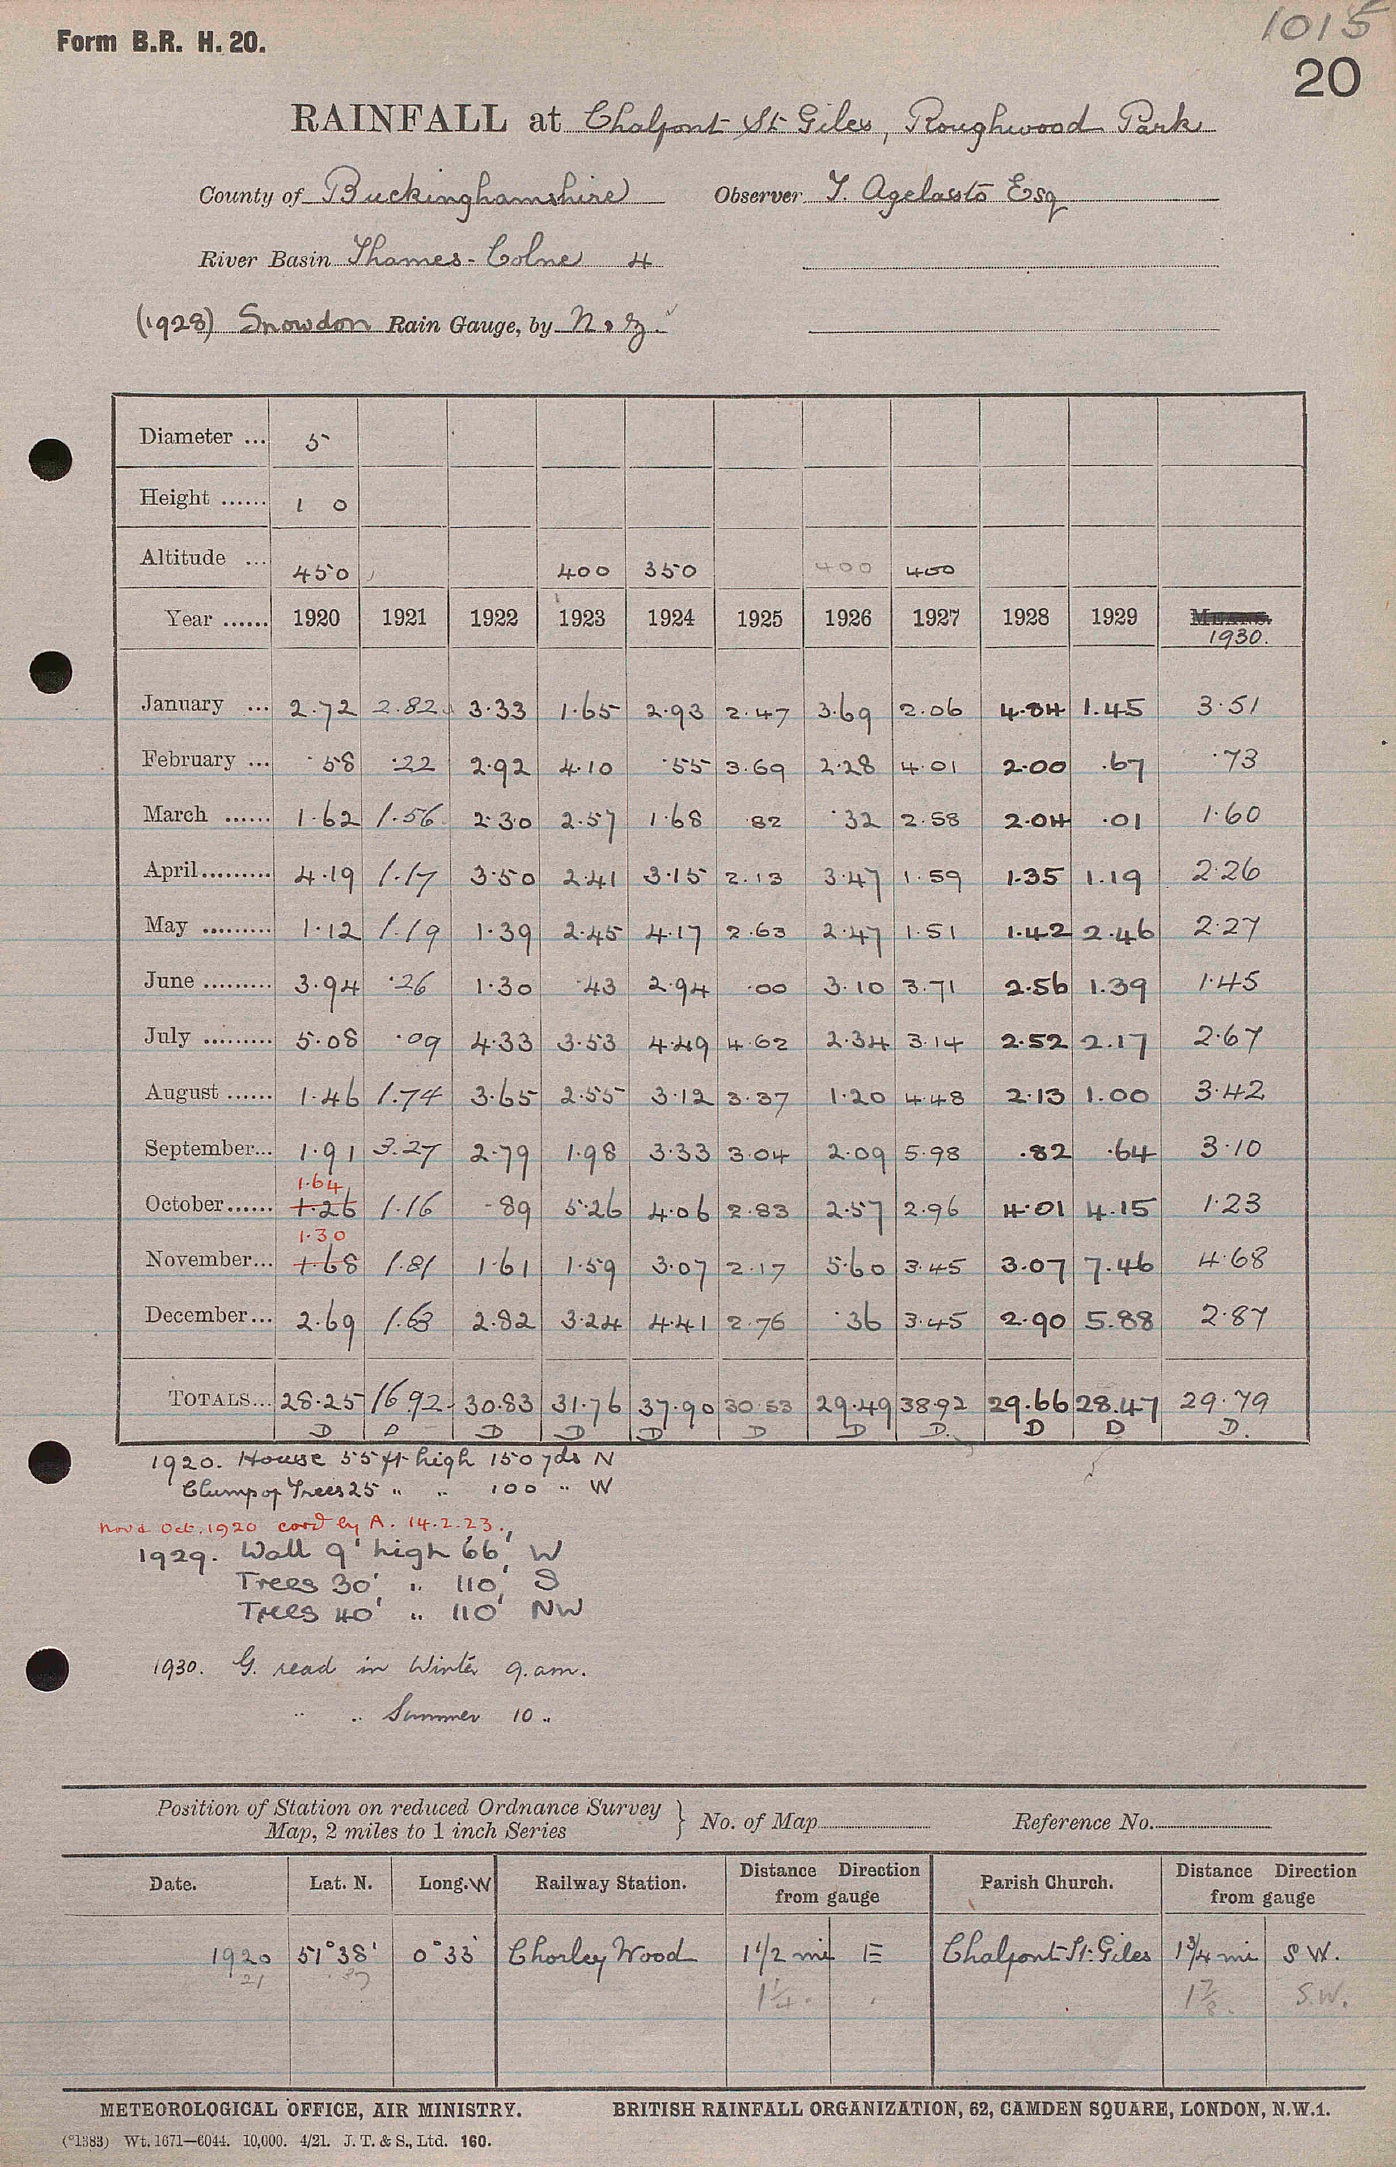 1015
Form B.R. H. 20.
20
RAINFALL at Chalfont St Giles, Roughwood Park
County of Buckinghamshire Observer T. Agelasto Esq
River Basin Thames - Colne 4
(1928) Snowdon Rain Gauge, by N. & Z.
Diameter ... 5
Height ...... 1 0
Altitude ... 450 400 350 400 400
Year ...... 1920 1921 1922 1923 1924 1925 1926 1927 1928 1929 MEANS. 1930.
January ... 2.72 2.82 3.33 1.65 2.93 2.47 3.69 2.06 4.84 1.45 3.51
February ... .58 .22 2.92 4.10 .55 3.69 2.28 4.01 2.00 .67 .73
March ...... 1.62 1.56 2.30 2.57 1.68 .82 .32 2.58 2.04 .01 1.60
April ......... 4.19 1.17 3.50 2.41 3.15 2.13 3.47 1.59 1.35 1.19 2.26
May ......... 1.12 1.19 1.39 2.45 4.17 2.63 2.47 1.51 1.42 2.46 2.27
June ......... 3.94 .26 1.30 .43 2.94 .00 3.10 3.71 2.56 1.39 1.45
July ......... 5.08 .09 4.33 3.53 4.49 4.62 2.34 3.14 2.52 2.17 2.67
August ...... 1.46 1.74 3.65 2.55 3.12 3.37 1.20 4.48 2.13 1.00 3.42
September... 1.91 3.27 2.79 1.98 3.33 3.04 2.09 5.98 .82 .64 3.10
1.64
October...... 1.26 1.16 .89 5.26 4.06 2.83 2.57 2.96 4.01 4.15 1.23
1.30
November... 1.68 1.81 1.61 1.59 3.07 2.17 5.60 3.45 3.07 7.46 4.68
December... 2.69 1.63 2.82 3.24 4.41 2.76 .36 3.45 2.90 5.88 2.87
TOTALS... 28.25 16.92 30.83 31.76 37.90 30.53 29.49 38.92 29.66 28.47 29.79
D D D D D D D D. D D D.
1920. House 55 ft high 150 yds N
Clump of Trees 25 " " 100 " W
Nov & Oct. 1920 corrd by A. 14.2.23.
1929. Wall 9' high 66' W
Trees 30' " 110' S
Trees 40' " 110' NW
1930. G. read in Winter 9. am.
" " Summer 10 "
Position of Station on reduced Ordnance Survey Map, 2 miles to 1 inch Series } No. of Map Reference No.
Date. Lat. N. Long. W Railway Station. Distance Direction from gauge Parish Church. Distance Direction from gauge
1920 51° 38' 0° 33' Chorley Wood 1 1/2 mi E Chalfont St. Giles 1 3/4 mi S W.
21 .37 1 1/4. 1 7/8. S.W.
METEOROLOGICAL OFFICE, AIR MINISTRY. BRITISH RAINFALL ORGANIZATION, 62, CAMDEN SQUARE, LONDON, N.W.1.
(*1383) Wt. 1671—6044. 10,000. 4/21. J. T. & S., Ltd. 160.